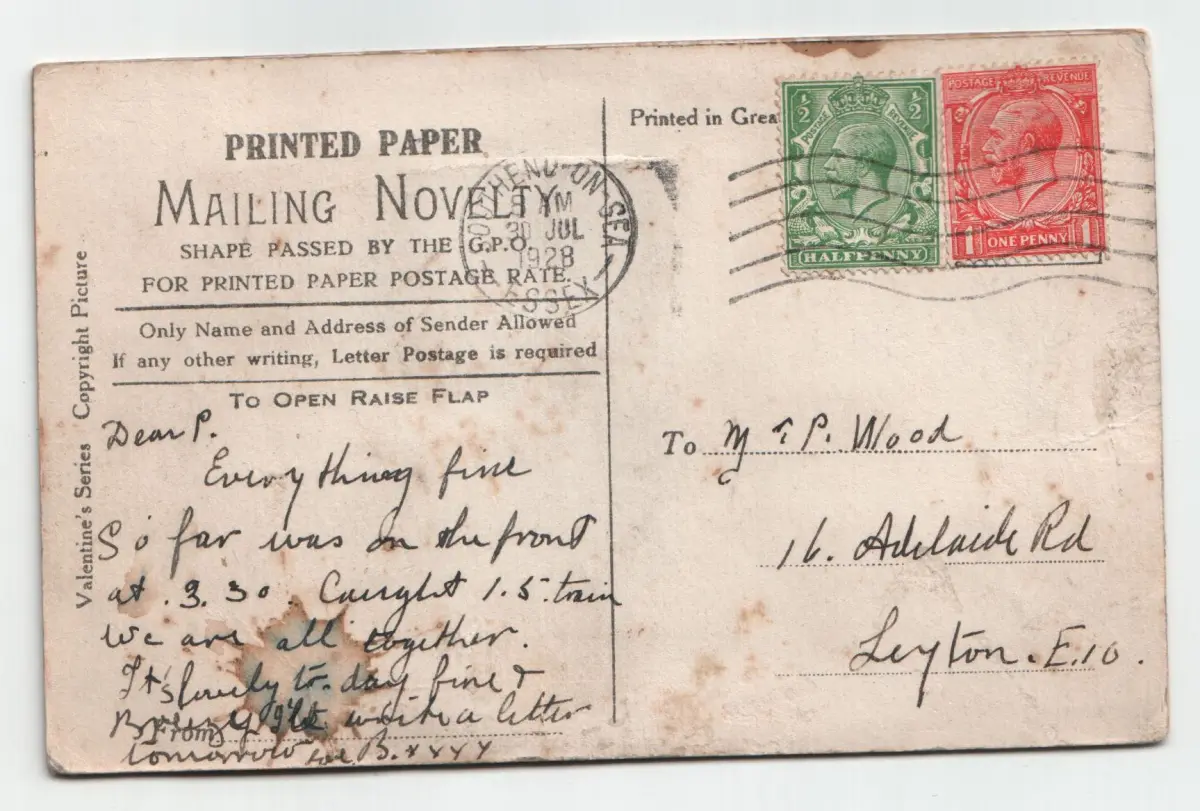 PRINTED PAPER
MAILING NOVELTY
SHAPE PASSED BY THE G.P.O.
FOR PRINTED PAPER POSTAGE RATE.
Only Name and Address of Sender Allowed
If any other writing, Letter Postage is required
TO OPEN RAISE FLAP
Valentine's Series Copyright Picture
Dear P.
Everything fine
So far was on the front
at .3.30. Caught 1.5. train
We are all together.
It's lovely to-day fine &
Breezy I'll write a letter
From
tomorrow B. xxxx
SOUTHEND-ON-SEA
AM
30 JUL
1928
ESSEX
Printed in Grea
1/2 1/2
POSTAGE REVENUE
HALFPENNY
POSTAGE REVENUE
1 ONE PENNY 1
To Mr P. Wood
16. Adelaide Rd
Leyton. E.10.